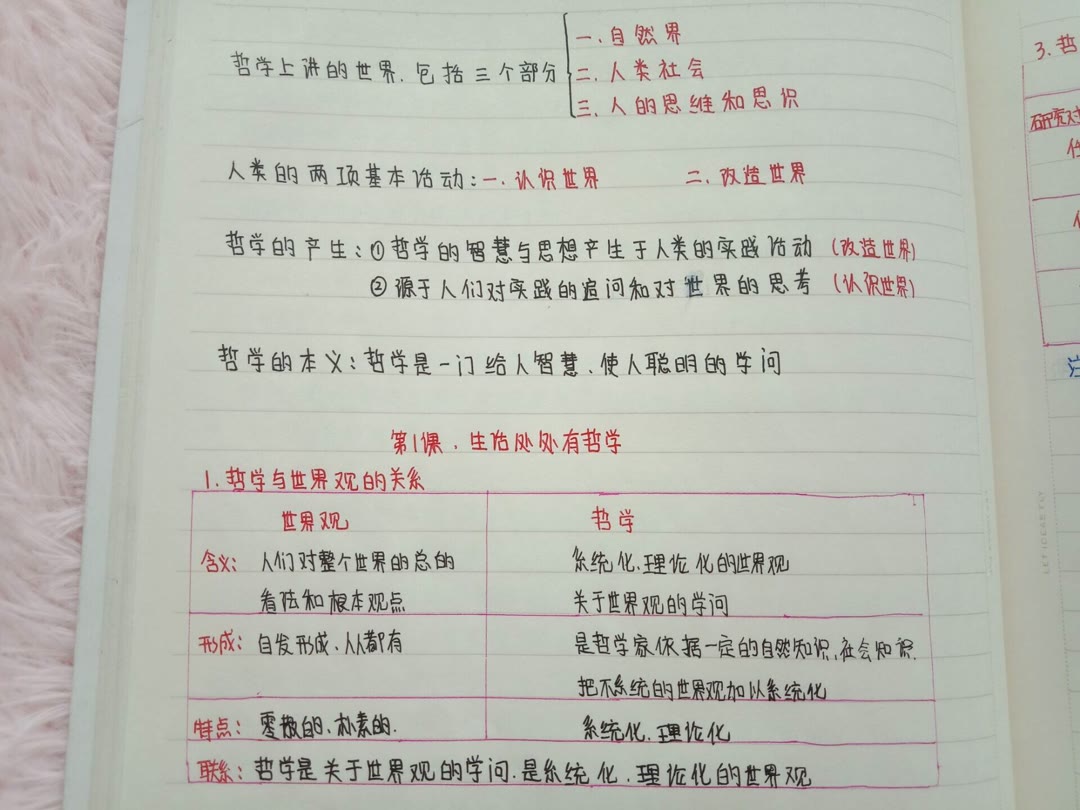 哲学上讲的世界.包括三个部分
一.自然界
二.人类社会
三.人的思维和思识
人类的两项基本活动:一.认识世界 二.改造世界
哲学的产生:①哲学的智慧与思想产生于人类的实践活动(改造世界)
②源于人们对实践的追问和对世界的思考(认识世界)
哲学的本义:哲学是一门给人智慧、使人聪明的学问
第1课.生活处处有哲学
1.哲学与世界观的关系
世界观 哲学
含义: 人们对整个世界的总的 系统化.理论化的世界观
看法和根本观点 关于世界观的学问
形成: 自发形成、人人都有 是哲学家依据一定的自然知识,社会知识.
把不系统的世界观加以系统化
特点: 零散的、朴素的. 系统化.理论化
联系: 哲学是关于世界观的学问.是系统化.理论化的世界观
3.哲
研究对
注
LET IDEAS FLY